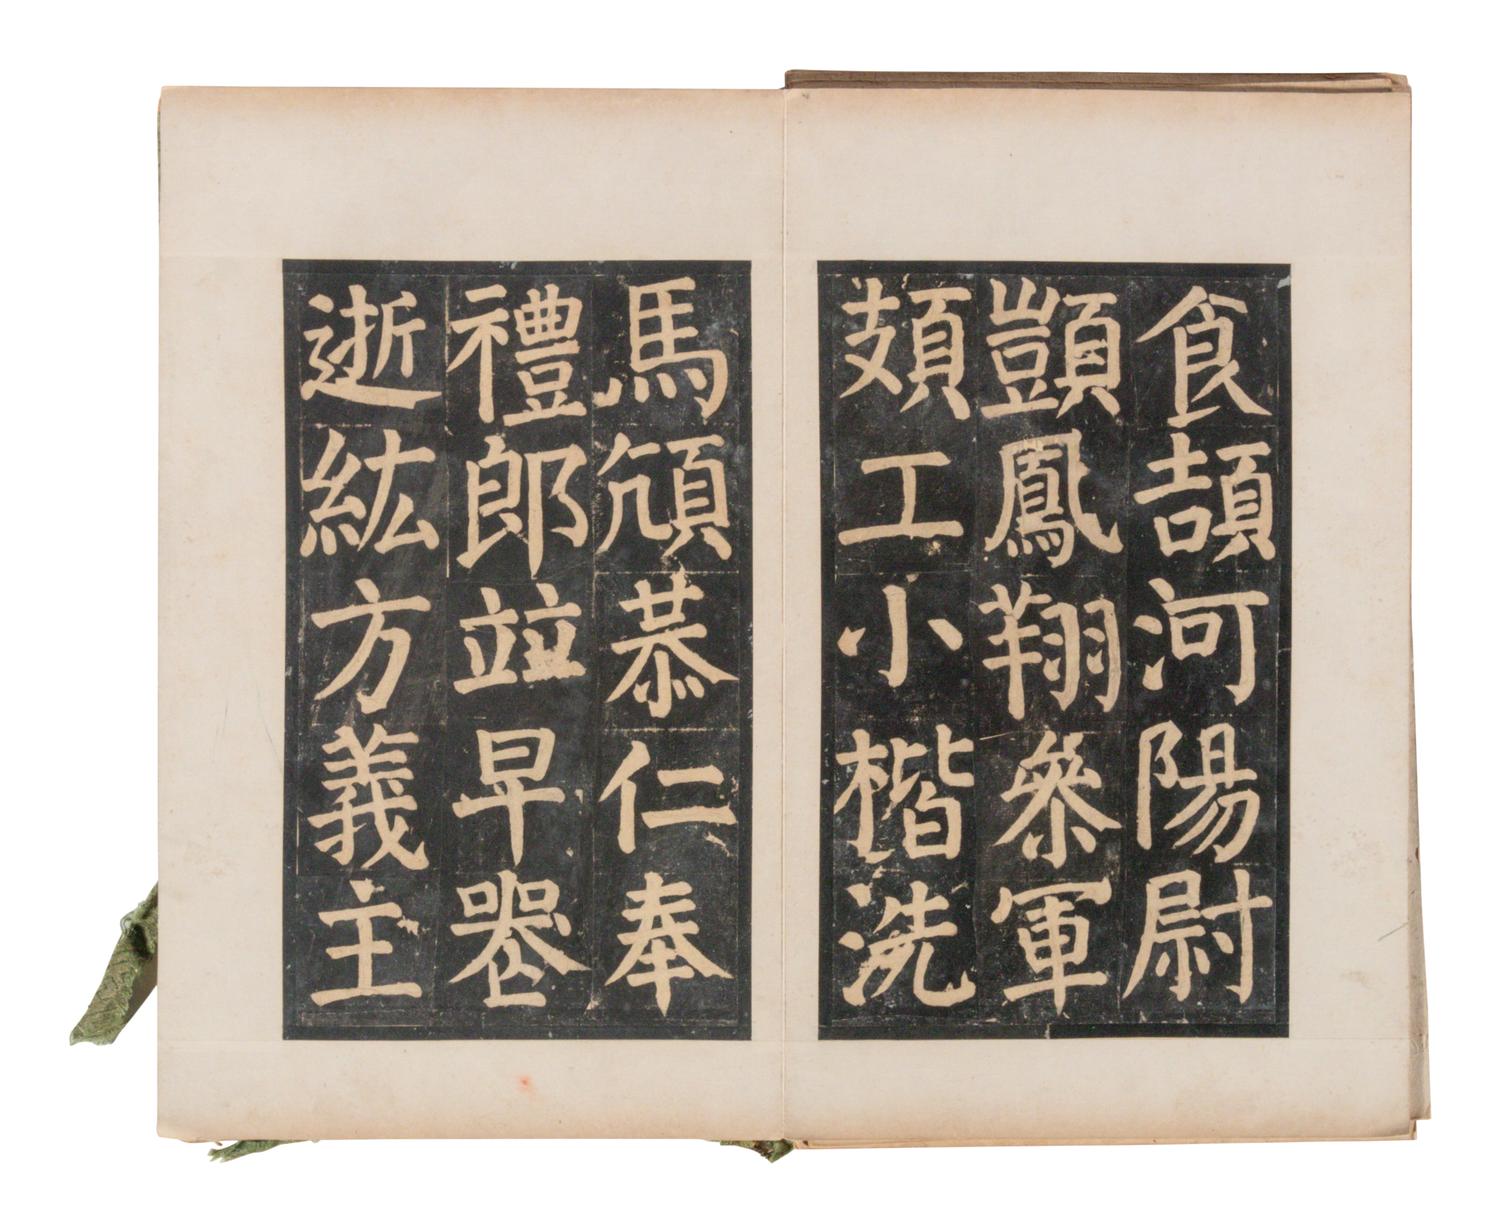 食頡河陽尉
顗鳳翔叅軍
頍工小楷洗
馬頏恭仁奉
禮郎竝早喪
逝紘方義主